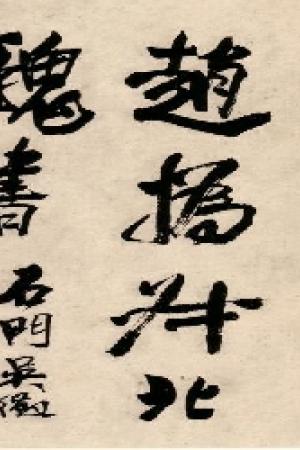 趙撝叔北
魏書 石門吳徵